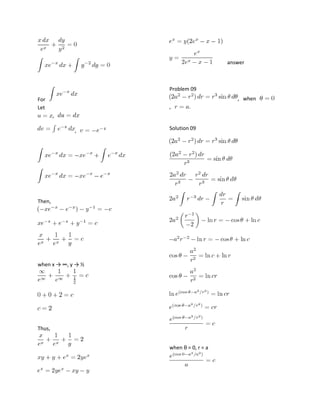 x dx / e^x + dy / y^2 = 0
∫ xe^{-x} dx + ∫ y^{-2} dy = 0
For ∫ xe^{-x} dx
Let
u = x, du = dx
dv = ∫ e^{-x} dx, v = −e^{-x}
∫ xe^{-x} dx = −xe^{-x} + ∫ e^{-x} dx
∫ xe^{-x} dx = −xe^{-x} − e^{-x}
Then,
(−xe^{-x} − e^{-x}) − y^{-1} = −c
xe^{-x} + e^{-x} + y^{-1} = c
x / e^x + 1 / e^x + 1 / y = c
when x → ∞, y → ½
∞ / e^∞ + 1 / e^∞ + 1 / (1/2) = c
0 + 0 + 2 = c
c = 2
Thus,
x / e^x + 1 / e^x + 1 / y = 2
xy + y + e^x = 2ye^x
e^x = 2ye^x − xy − y
e^x = y(2e^x − x − 1)
y = e^x / (2e^x − x − 1) answer
Problem 09
(2a^2 − r^2) dr = r^3 sin θ dθ, when θ = 0
, r = a.
Solution 09
(2a^2 − r^2) dr = r^3 sin θ dθ
(2a^2 − r^2) dr / r^3 = sin θ dθ
2a^2 dr / r^3 − r^2 dr / r^3 = sin θ dθ
2a^2 ∫ r^{-3} dr − ∫ dr / r = ∫ sin θ dθ
2a^2 (r^{-2} / −2) − ln r = − cos θ + ln c
−a^2r^{-2} − ln r = − cos θ + ln c
cos θ − a^2 / r^2 = ln c + ln r
cos θ − a^2 / r^2 = ln cr
ln e^{(cos θ−a^2/r^2)} = ln cr
e^{(cos θ−a^2/r^2)} = cr
e^{(cos θ−a^2/r^2)} / r = c
when θ = 0, r = a
e^{(cos 0−a^2/a^2)} / a = c